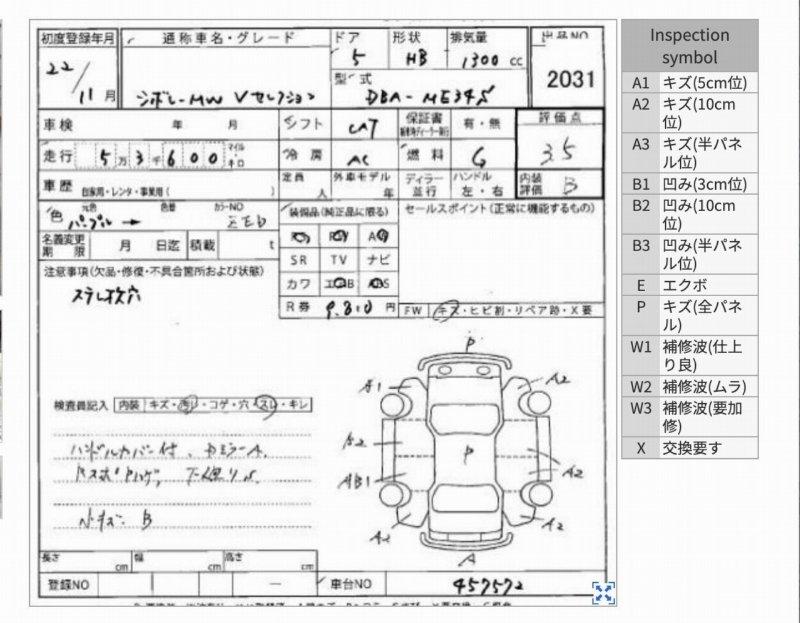 初度登録年月
通称車名・グレード
ドア
形状
排気量
出品NO
22/11月
シボレーMW Vセレクション
5
HB
1300 cc
2031
型式
DBA-ME34S
車検 年 月
シフト
CAT
保証書
有・無
評価点
3.5
走行 5万3千600
マイル・キロ
冷房
AC
燃料
G
車歴 自家用・レンタ・事業用(
定員 人
外車モデル 年
ディラー 並行
ハンドル 左・右
内装評価
B
色
元色
色替
カラーNO
パープル→
ZEB
装備品(純正品に限る)
セールスポイント(正常に機能するもの)
名義変更期限 月 日迄
積載 t
SR TV ナビ
カワ
R券 9.810円
注意事項(欠品・修復・不具合箇所および状態)
FW キズ・ヒビ割・リペア跡・X要
検査員記入 内装 キズ・汚レ・コゲ・穴・スレ・キレ
ハンドルカバー付、
B
P
A1
A2
B2
P
AB1
A2
A2
A2
A
長さ cm
幅 cm
高さ cm
登録NO
—
車台NO
457572
Inspection symbol
A1 キズ(5cm位)
A2 キズ(10cm位)
A3 キズ(半パネル位)
B1 凹み(3cm位)
B2 凹み(10cm位)
B3 凹み(半パネル位)
E エクボ
P キズ(全パネル)
W1 補修波(仕上り良)
W2 補修波(ムラ)
W3 補修波(要加修)
X 交換要す